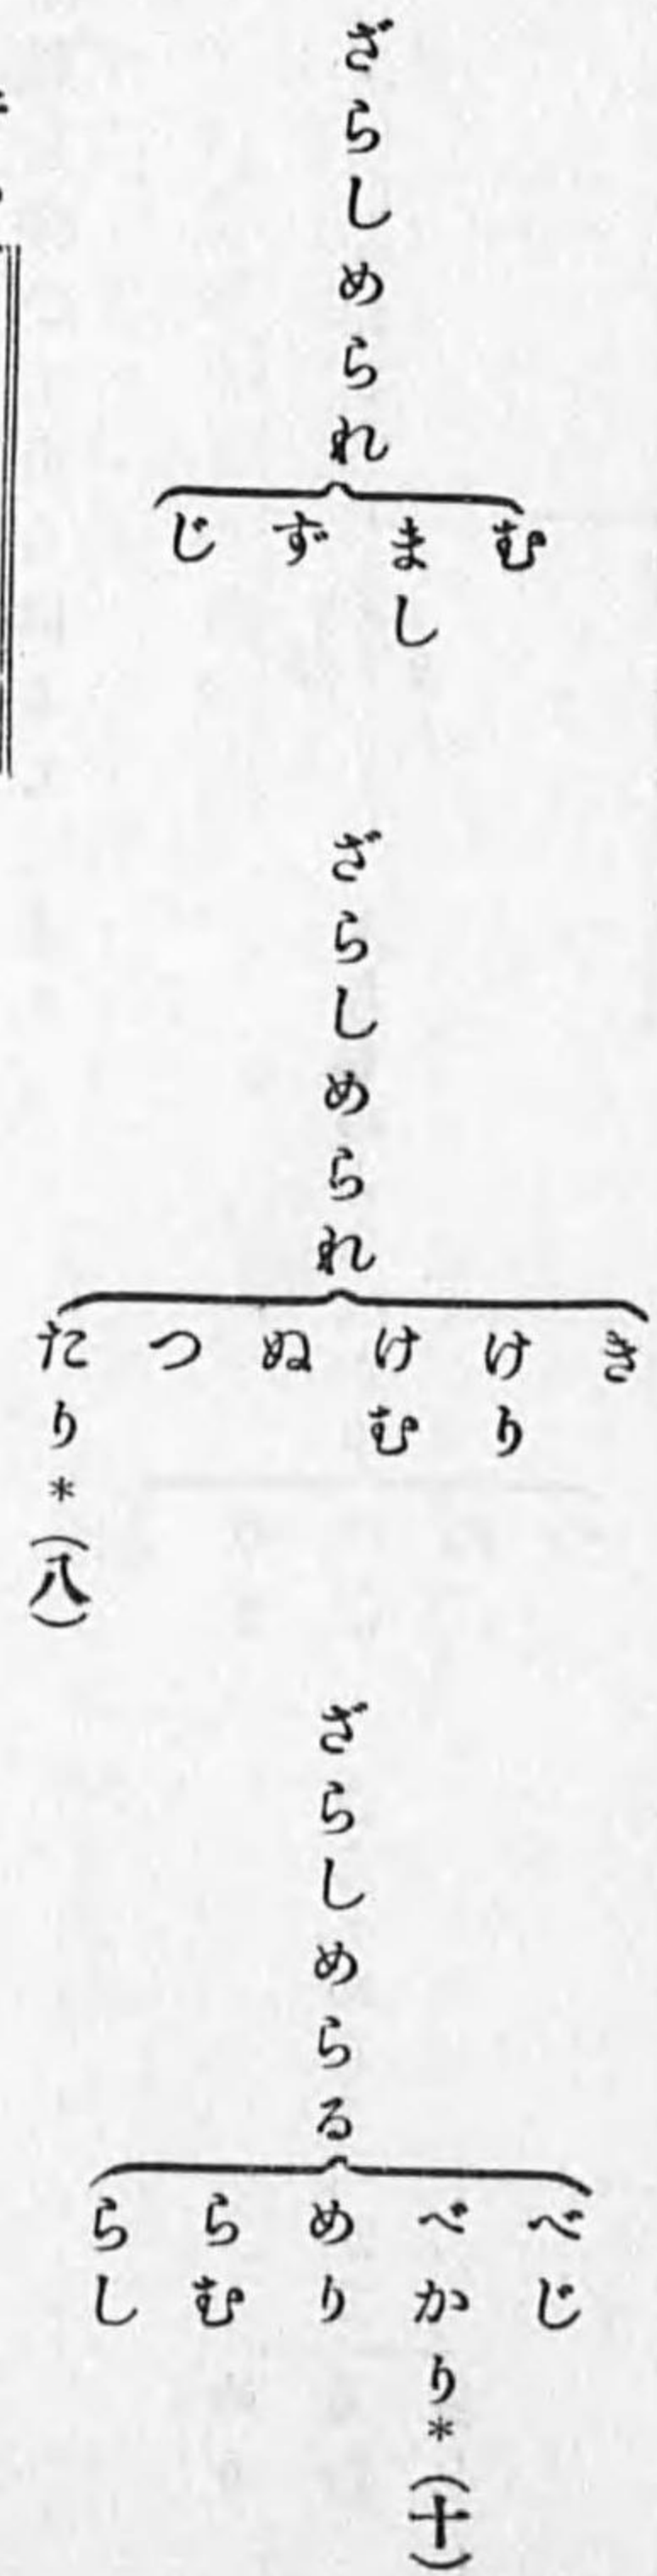 ざらしめられ
む
まし
ず
じ
ざらしめられ
き
けり
けむ
ぬ
つ
たり*(八)
ざらしめらる
べじ
べかり*(十)
めり
らむ
らし